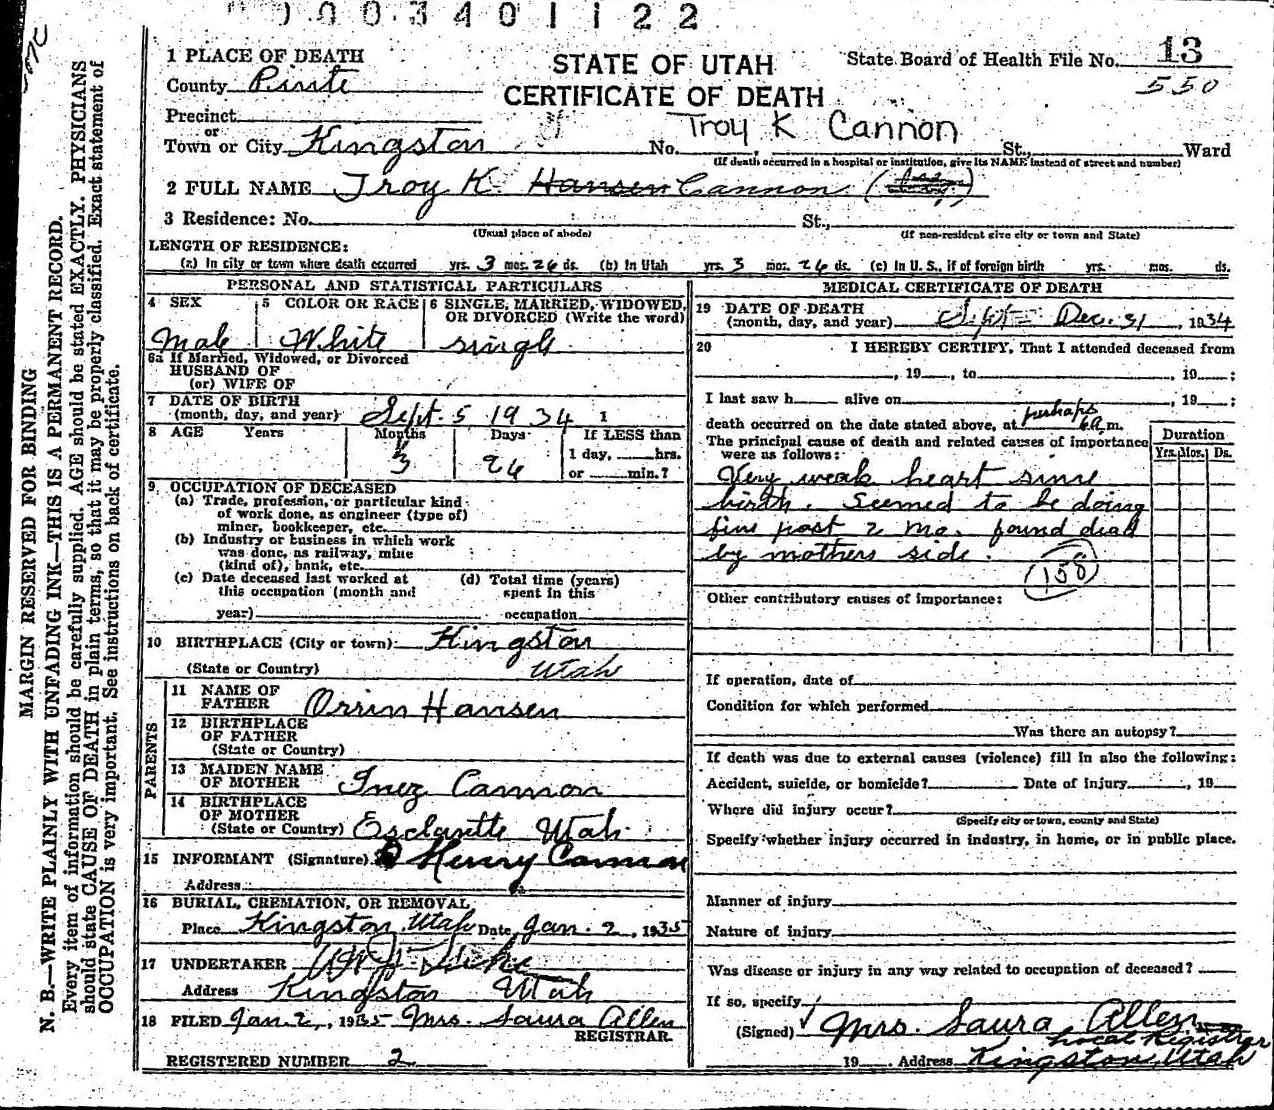 0003401122
1 PLACE OF DEATH
County Piute
STATE OF UTAH
CERTIFICATE OF DEATH
State Board of Health File No. 13
550
Precinct
or
Town or City Kingston No. St., Ward
Troy K Cannon
(If death occurred in a hospital or institution, give its NAME instead of street and number)
2 FULL NAME Troy K. Hansen Cannon
3 Residence: No. St.,
(Usual place of abode) (If non-resident give city or town and State)
LENGTH OF RESIDENCE:
(a) In city or town where death occurred yrs. 3 mos. 26 ds. (b) In Utah yrs. 3 mos. 26 ds. (c) In U. S., if of foreign birth yrs. mos. ds.
PERSONAL AND STATISTICAL PARTICULARS
4 SEX
Male
5 COLOR OR RACE
White
6 SINGLE, MARRIED, WIDOWED,
OR DIVORCED (Write the word)
single
6a If Married, Widowed, or Divorced
HUSBAND OF
(or) WIFE OF
7 DATE OF BIRTH
(month, day, and year) Sept. 5 1934 1
8 AGE Years Months Days If LESS than
3 26 1 day, hrs.
or min.?
9 OCCUPATION OF DECEASED
(a) Trade, profession, or particular kind
of work done, as engineer (type of)
miner, bookkeeper, etc.
(b) Industry or business in which work
was done, as railway, mine
(kind of), bank, etc.
(c) Date deceased last worked at
this occupation (month and
year)
(d) Total time (years)
spent in this
occupation
10 BIRTHPLACE (City or town) Kingston
(State or Country) Utah
PARENTS
11 NAME OF
FATHER Orrin Hansen
12 BIRTHPLACE
OF FATHER
(State or Country)
13 MAIDEN NAME
OF MOTHER Inez Cannon
14 BIRTHPLACE
OF MOTHER
(State or Country) Esclantte Utah
15 INFORMANT (Signature) Henry Cannon
Address
16 BURIAL, CREMATION, OR REMOVAL
Place Kingston, Utah Date Jan. 2, 1935
17 UNDERTAKER
Address Kingston Utah
18 FILED Jan 2, 1935 Mrs. Laura Allen
REGISTRAR
REGISTERED NUMBER 2
MEDICAL CERTIFICATE OF DEATH
19 DATE OF DEATH
(month, day, and year) Sept Dec. 31, 1934
20 I HEREBY CERTIFY, That I attended deceased from
, 19 , to , 19 ;
I last saw h alive on , 19 ;
perhaps
death occurred on the date stated above, at 6 a.m.
The principal cause of death and related causes of importance
were as follows:
Duration
Yrs. Mos. Ds.
Very weak heart since
birth. Seemed to be doing
fine past 2 mo. found dead
by mothers side.
(158)
Other contributory causes of importance:
If operation, date of
Condition for which performed
Was there an autopsy?
If death was due to external causes (violence) fill in also the following:
Accident, suicide, or homicide? Date of injury , 19
Where did injury occur?
(Specify city or town, county and State)
Specify whether injury occurred in industry, in home, or in public place.
Manner of injury
Nature of injury
Was disease or injury in any way related to occupation of deceased?
If so, specify
(Signed) Mrs. Laura Allen
Local Registrar
19 Address Kingston, Utah
MARGIN RESERVED FOR BINDING
N. B.—WRITE PLAINLY WITH UNFADING INK—THIS IS A PERMANENT RECORD.
Every item of information should be carefully supplied. AGE should be stated EXACTLY. PHYSICIANS
should state CAUSE OF DEATH in plain terms, so that it may be properly classified. Exact statement of
OCCUPATION is very important. See instructions on back of certificate.